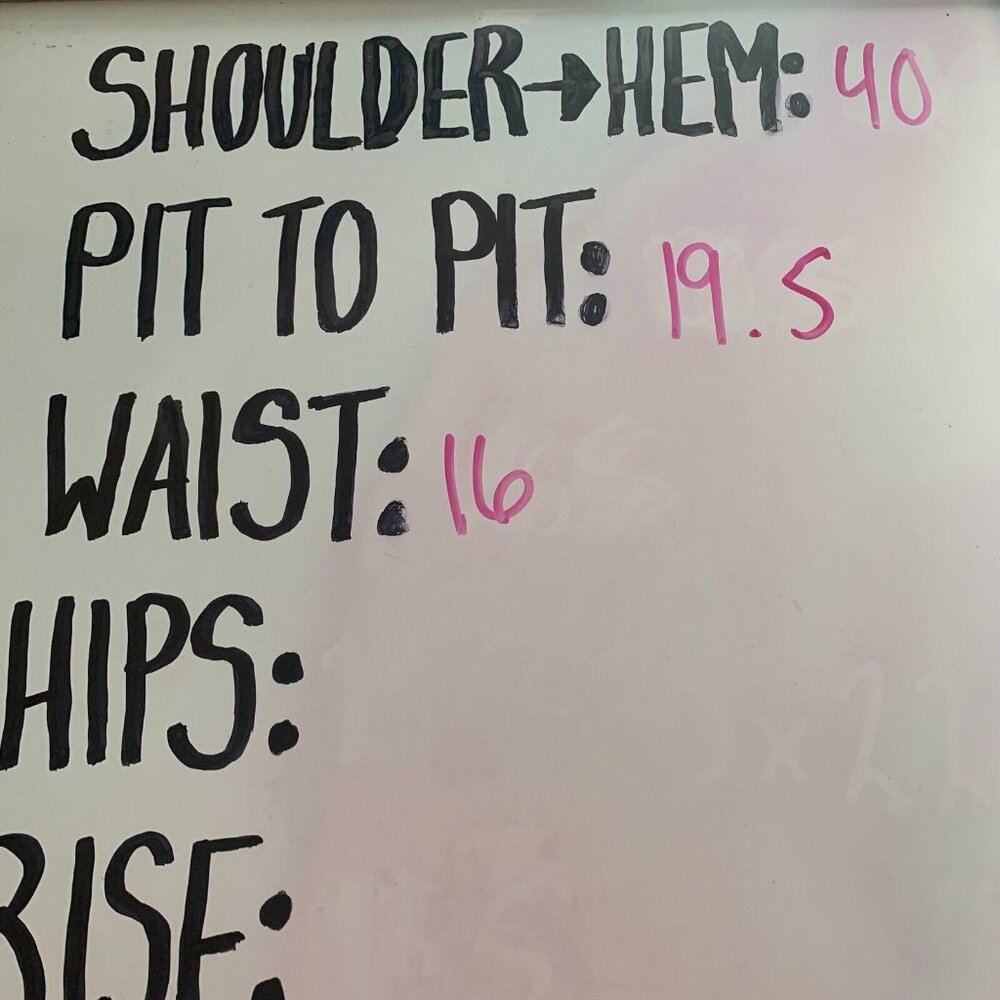 SHOULDER→HEM: 40
PIT TO PIT: 19.5
WAIST: 16
HIPS:
RISE: